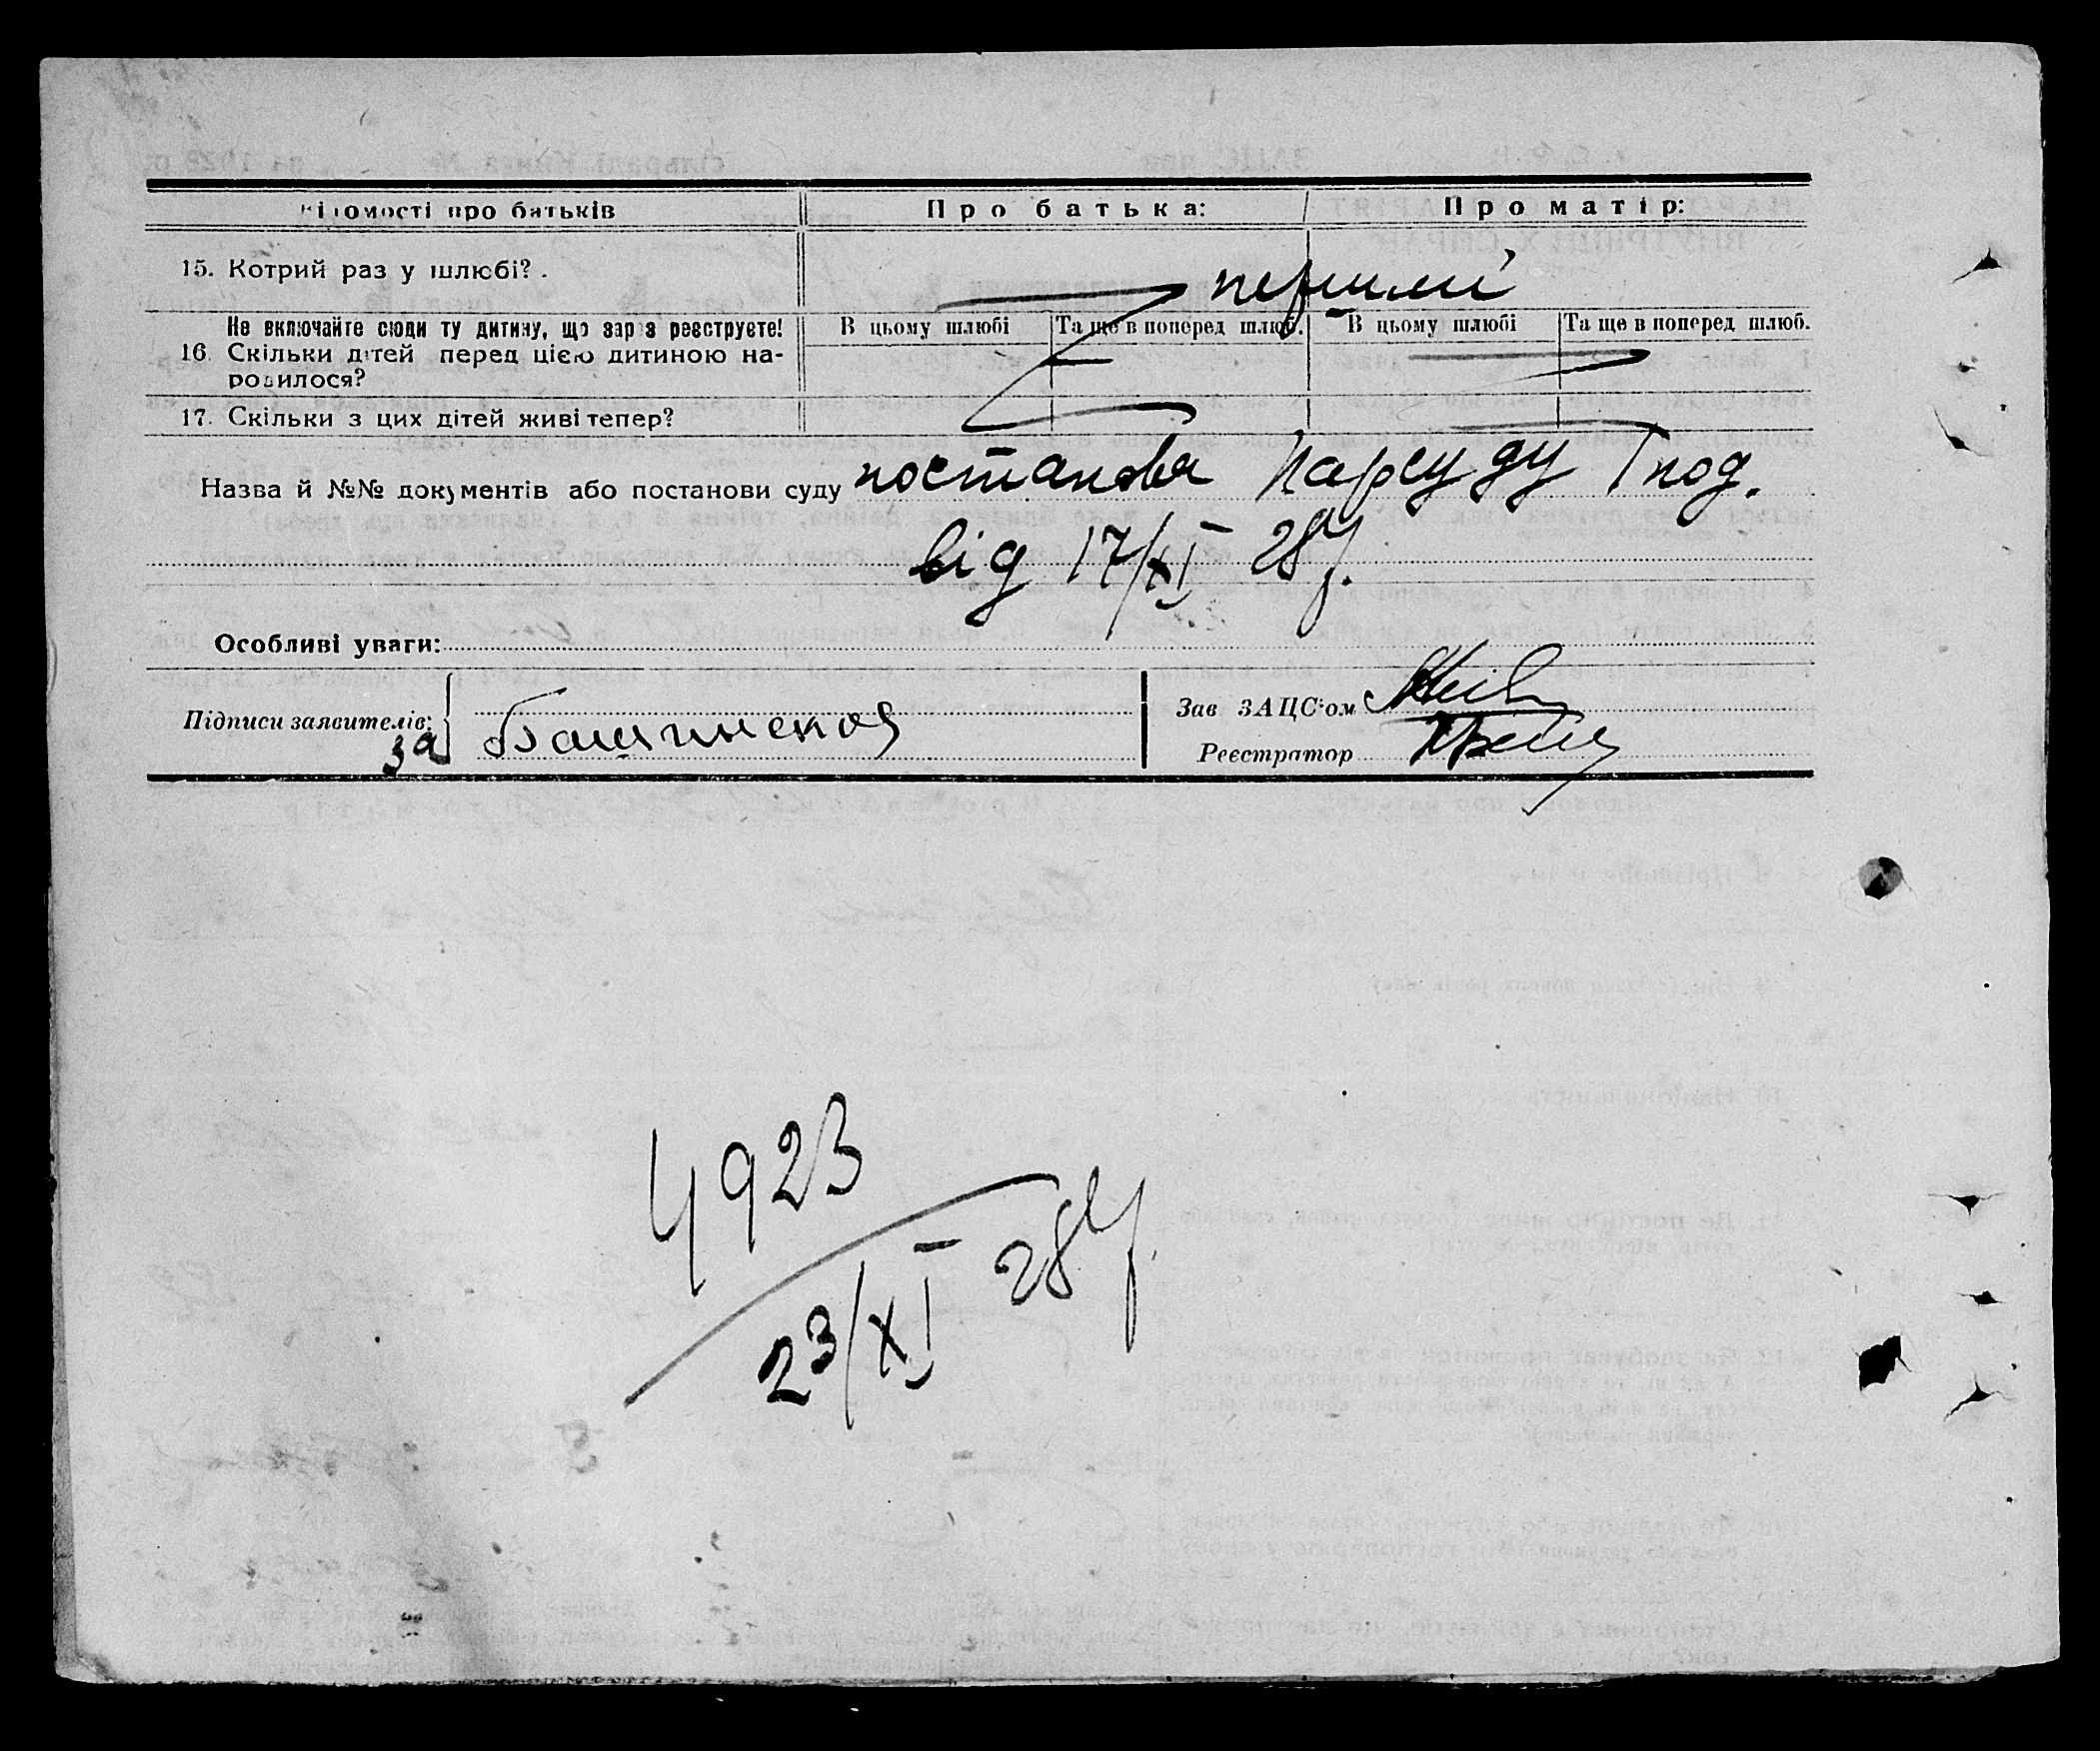 Відомості про батьків Про батька: Про матір:
15. Котрий раз у шлюбі? . перший
Не включайте сюди ту дитину, що зараз реєструєте! В цьому шлюбі Та ще в поперед шлюб. В цьому шлюбі Та ще в поперед шлюб.
16. Скільки дітей перед цією дитиною на-
родилося?
17. Скільки з цих дітей живі тепер?
Назва й №№ документів або постанови суду постанова Нарсуду 1 под.
від 17/XI – 28 р.
Особливі уваги:
Підписи заявителів: Зав ЗАЦС'ом
за
Реєстратор
4923
23/XI – 28 р.